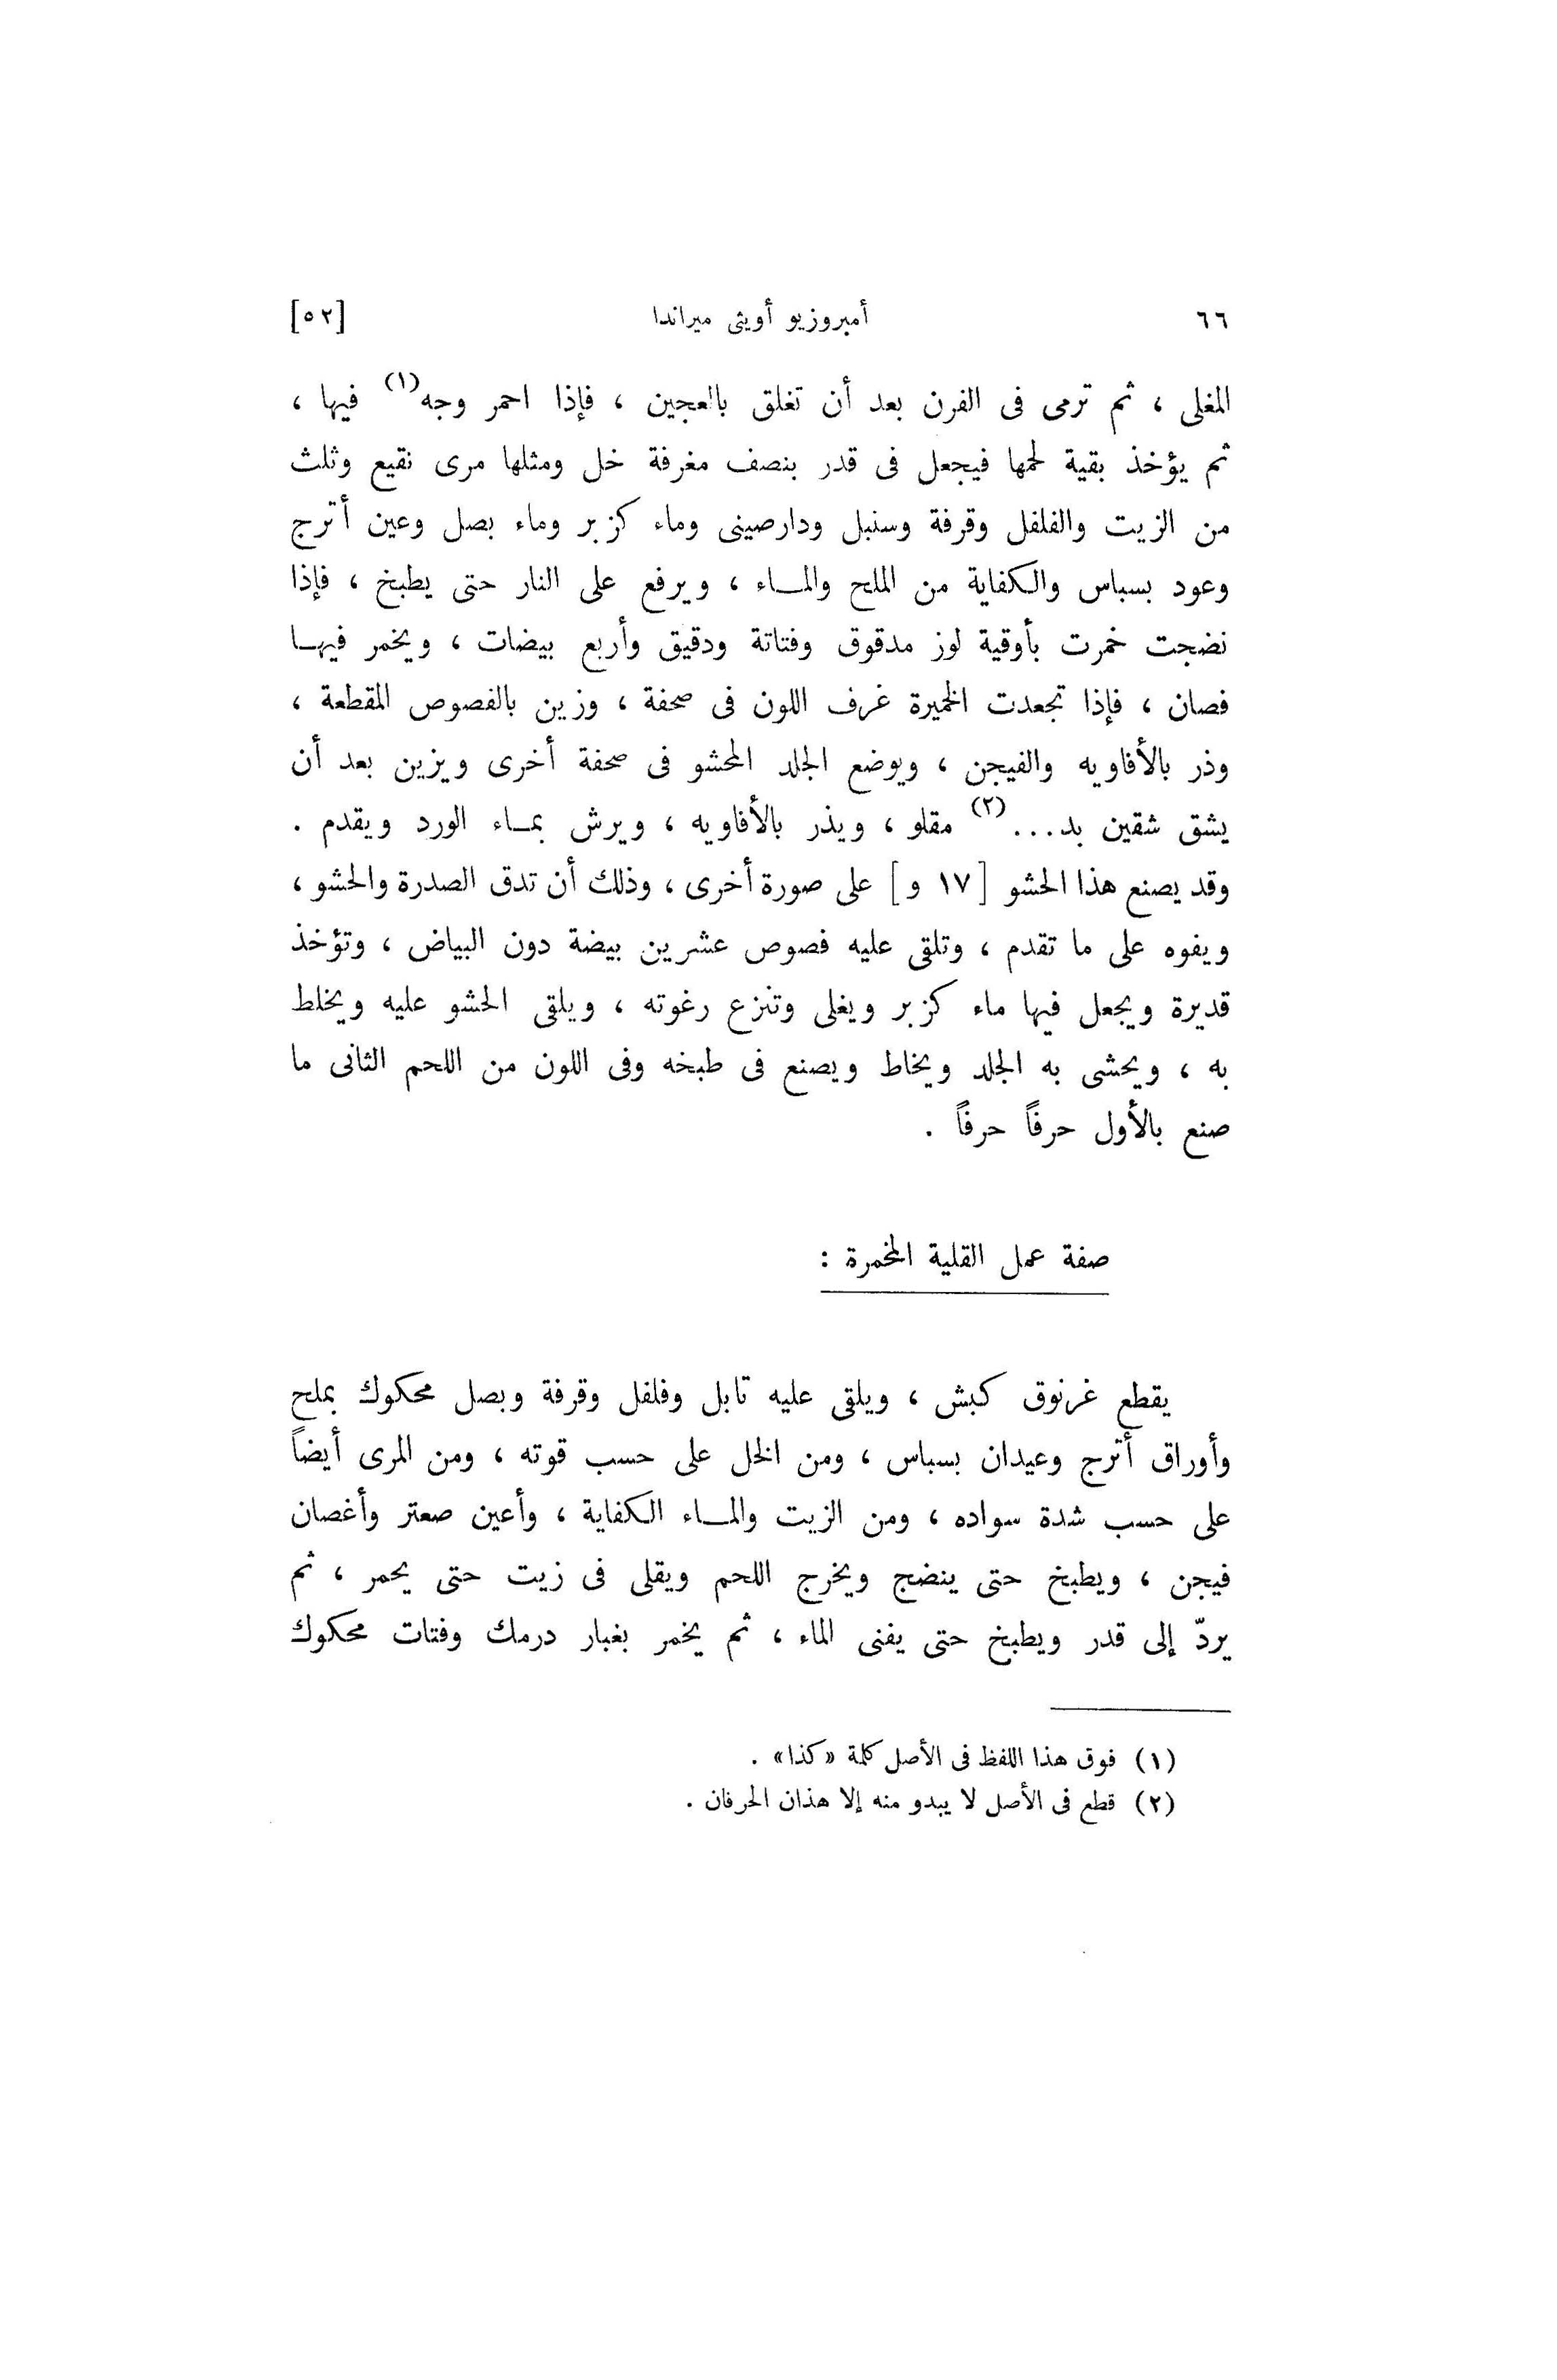 ٦٦ أمبروزيو أويثى ميراندا [٥٢]
المغلى ، ثم ترمى فى الفرن بعد أن تغلق بالعجين ، فإذا احمر وجه(١) فيها ،
ثم يؤخذ بقية لحمها فيجعل فى قدر بنصف مغرفة خل ومثلها مرى نقيع وثلث
من الزيت والفلفل وقرفة وسنبل ودارصينى وماء كزبر وماء بصل وعين أترج
وعود بسباس والكفاية من الملح والمــاء ، ويرفع على النار حتى يطبخ ، فإذا
نضجت خمرت بأوقية لوز مدقوق وفتاتة ودقيق وأربع بيضات ، ويخمر فيهــا
فصان ، فإذا تجعدت الخميرة غرف اللون فى صحفة ، وزين بالفصوص المقطعة ،
وذر بالأفاويه والفيجن ، ويوضع الجلد المحشو فى صحفة أخرى ويزين بعد أن
يشق شقين بد...(٢) مقلو ، ويذر بالأفاويه ، ويرش بمــاء الورد ويقدم .
وقد يصنع هذا الحشو [ ١٧ و ] على صورة أخرى ، وذلك أن تدق الصدرة والحشو ،
ويفوه على ما تقدم ، وتلقى عليه فصوص عشرين بيضة دون البياض ، وتؤخذ
قديرة ويجعل فيها ماء كزبر ويغلى وتنزع رغوته ، ويلقى الحشو عليه ويخلط
به ، ويحشى به الجلد ويخاط ويصنع فى طبخه وفى اللون من اللحم الثانى ما
صنع بالأول حرفاً حرفاً .
صفة عمل القلية المخمرة :
يقطع غرنوق كبش ، ويلقى عليه تابل وفلفل وقرفة وبصل محكوك بملح
وأوراق أترج وعيدان بسباس ، ومن الخل على حسب قوته ، ومن المرى أيضاً
على حسب شدة سواده ، ومن الزيت والمــاء الكفاية ، وأعين صعتر وأغصان
فيجن ، ويطبخ حتى ينضج ويخرج اللحم ويقلى فى زيت حتى يحمر ، ثم
يردّ إلى قدر ويطبخ حتى يفنى الماء ، ثم يخمر بغبار درمك وفتات محكوك
(١) فوق هذا اللفظ فى الأصل كلمة «كذا» .
(٢) قطع فى الأصل لا يبدو منه إلا هذان الحرفان .